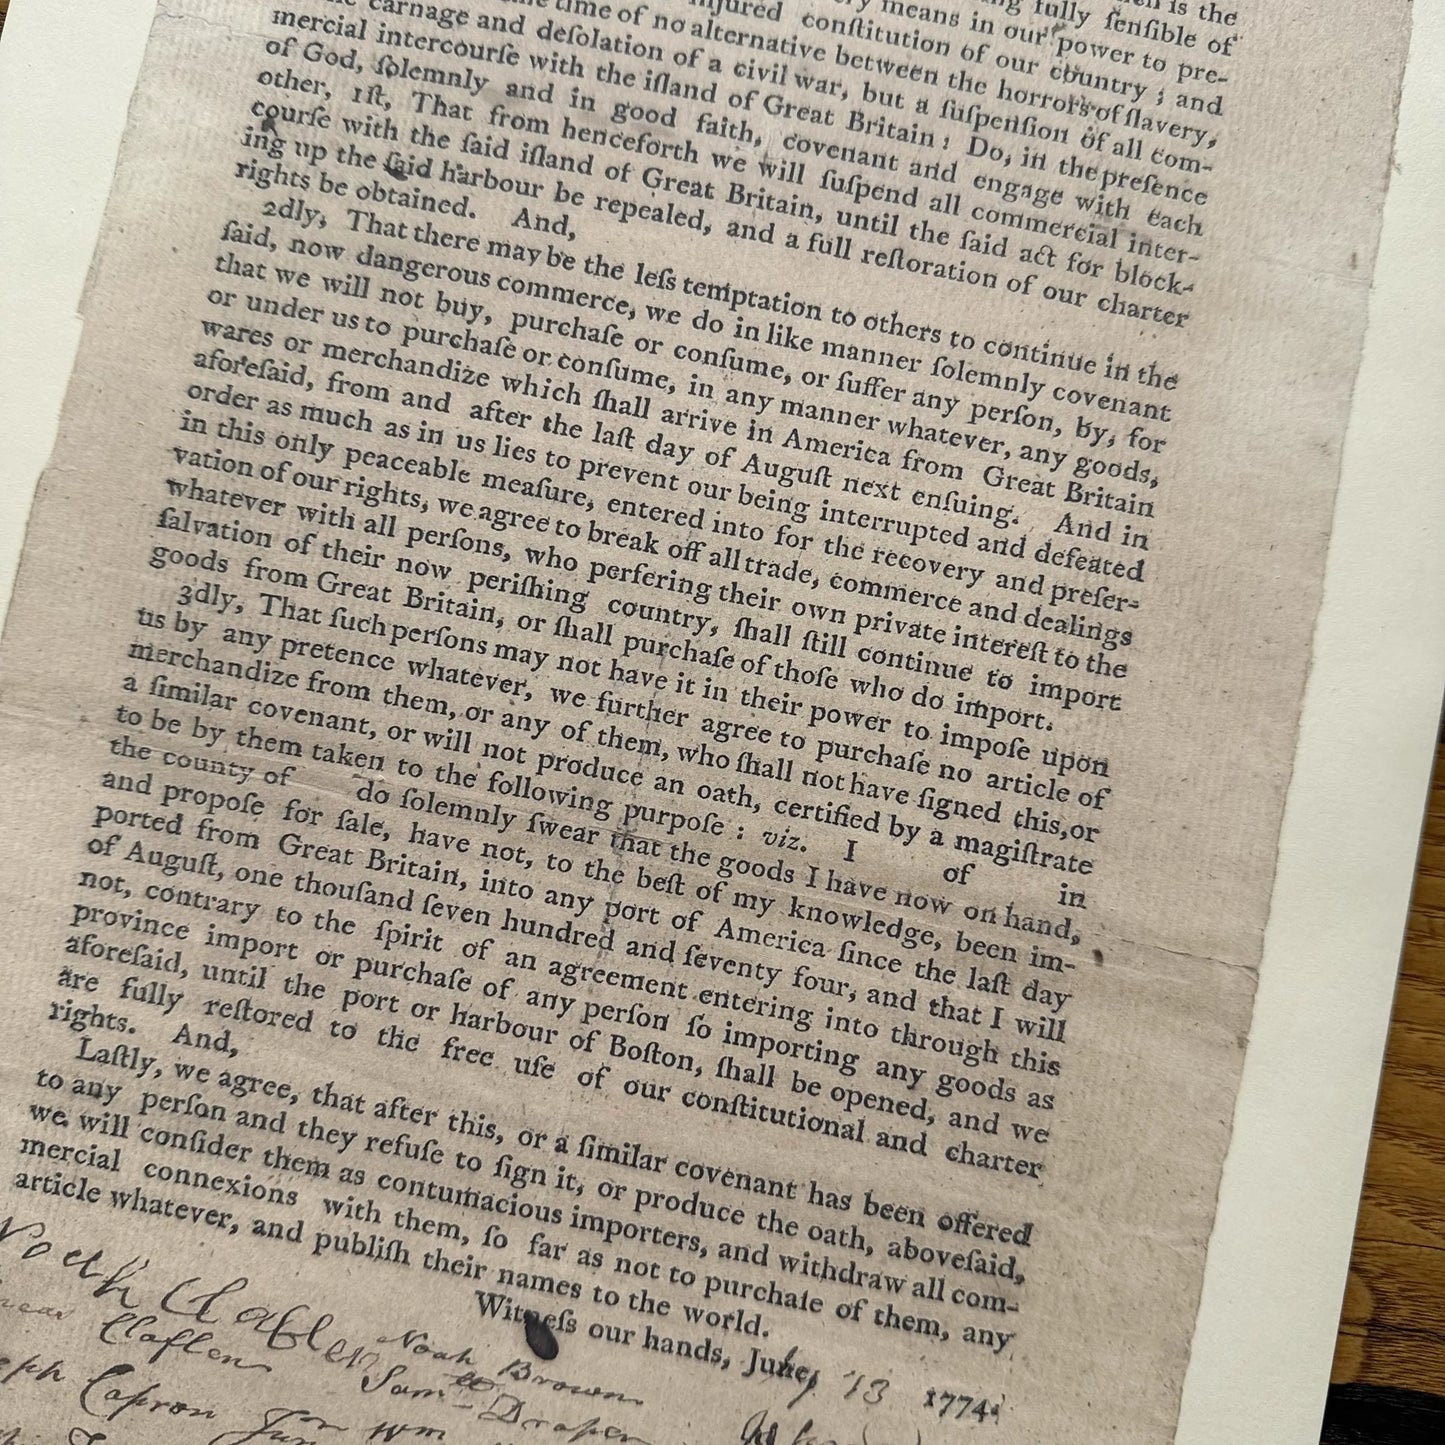 is the
fully ſenſible of
means in our power to pre-
injured conſtitution of our country ; and
time of no alternative between the horrors of ſlavery,
carnage and deſolation of a civil war, but a ſuſpenſion of all com-
mercial intercourſe with the iſland of Great Britain : Do, in the preſence
of God, ſolemnly and in good faith, covenant and engage with each
other, 1ſt, That from henceforth we will ſuſpend all commercial inter-
courſe with the ſaid iſland of Great Britain, until the ſaid act for block-
ing up the ſaid harbour be repealed, and a full reſtoration of our charter
rights be obtained. And,
2dly, That there may be the leſs temptation to others to continue in the
ſaid, now dangerous commerce, we do in like manner ſolemnly covenant
that we will not buy, purchaſe or conſume, or ſuffer any perſon, by, for
or under us to purchaſe or conſume, in any manner whatever, any goods,
wares or merchandize which ſhall arrive in America from Great Britain
aforeſaid, from and after the laſt day of Auguſt next enſuing. And in
order as much as in us lies to prevent our being interrupted and defeated
in this only peaceable meaſure, entered into for the recovery and preſer-
vation of our rights, we agree to break off all trade, commerce and dealings
whatever with all perſons, who perfering their own private intereſt to the
ſalvation of their now periſhing country, ſhall ſtill continue to import
goods from Great Britain, or ſhall purchaſe of thoſe who do import.
3dly, That ſuch perſons may not have it in their power to impoſe upon
us by any pretence whatever, we further agree to purchaſe no article of
merchandize from them, or any of them, who ſhall not have ſigned this, or
a ſimilar covenant, or will not produce an oath, certified by a magiſtrate
to be by them taken to the following purpoſe : viz. I of in
the county of do ſolemnly ſwear that the goods I have now on hand,
and propoſe for ſale, have not, to the beſt of my knowledge, been im-
ported from Great Britain, into any port of America ſince the laſt day
of Auguſt, one thouſand ſeven hundred and ſeventy four, and that I will
not, contrary to the ſpirit of an agreement entering into through this
province import or purchaſe of any perſon ſo importing any goods as
aforeſaid, until the port or harbour of Boſton, ſhall be opened, and we
are fully reſtored to the free uſe of our conſtitutional and charter
rights. And,
Laſtly, we agree, that after this, or a ſimilar covenant has been offered
to any perſon and they refuſe to ſign it, or produce the oath, aboveſaid,
we will conſider them as contumacious importers, and withdraw all com-
mercial connexions with them, ſo far as not to purchaſe of them, any
article whatever, and publiſh their names to the world.
Witneſs our hands, July 13 1774.
Noah Claflen Noah Brown
Claflen Samll Draper
Capron Junr Wm